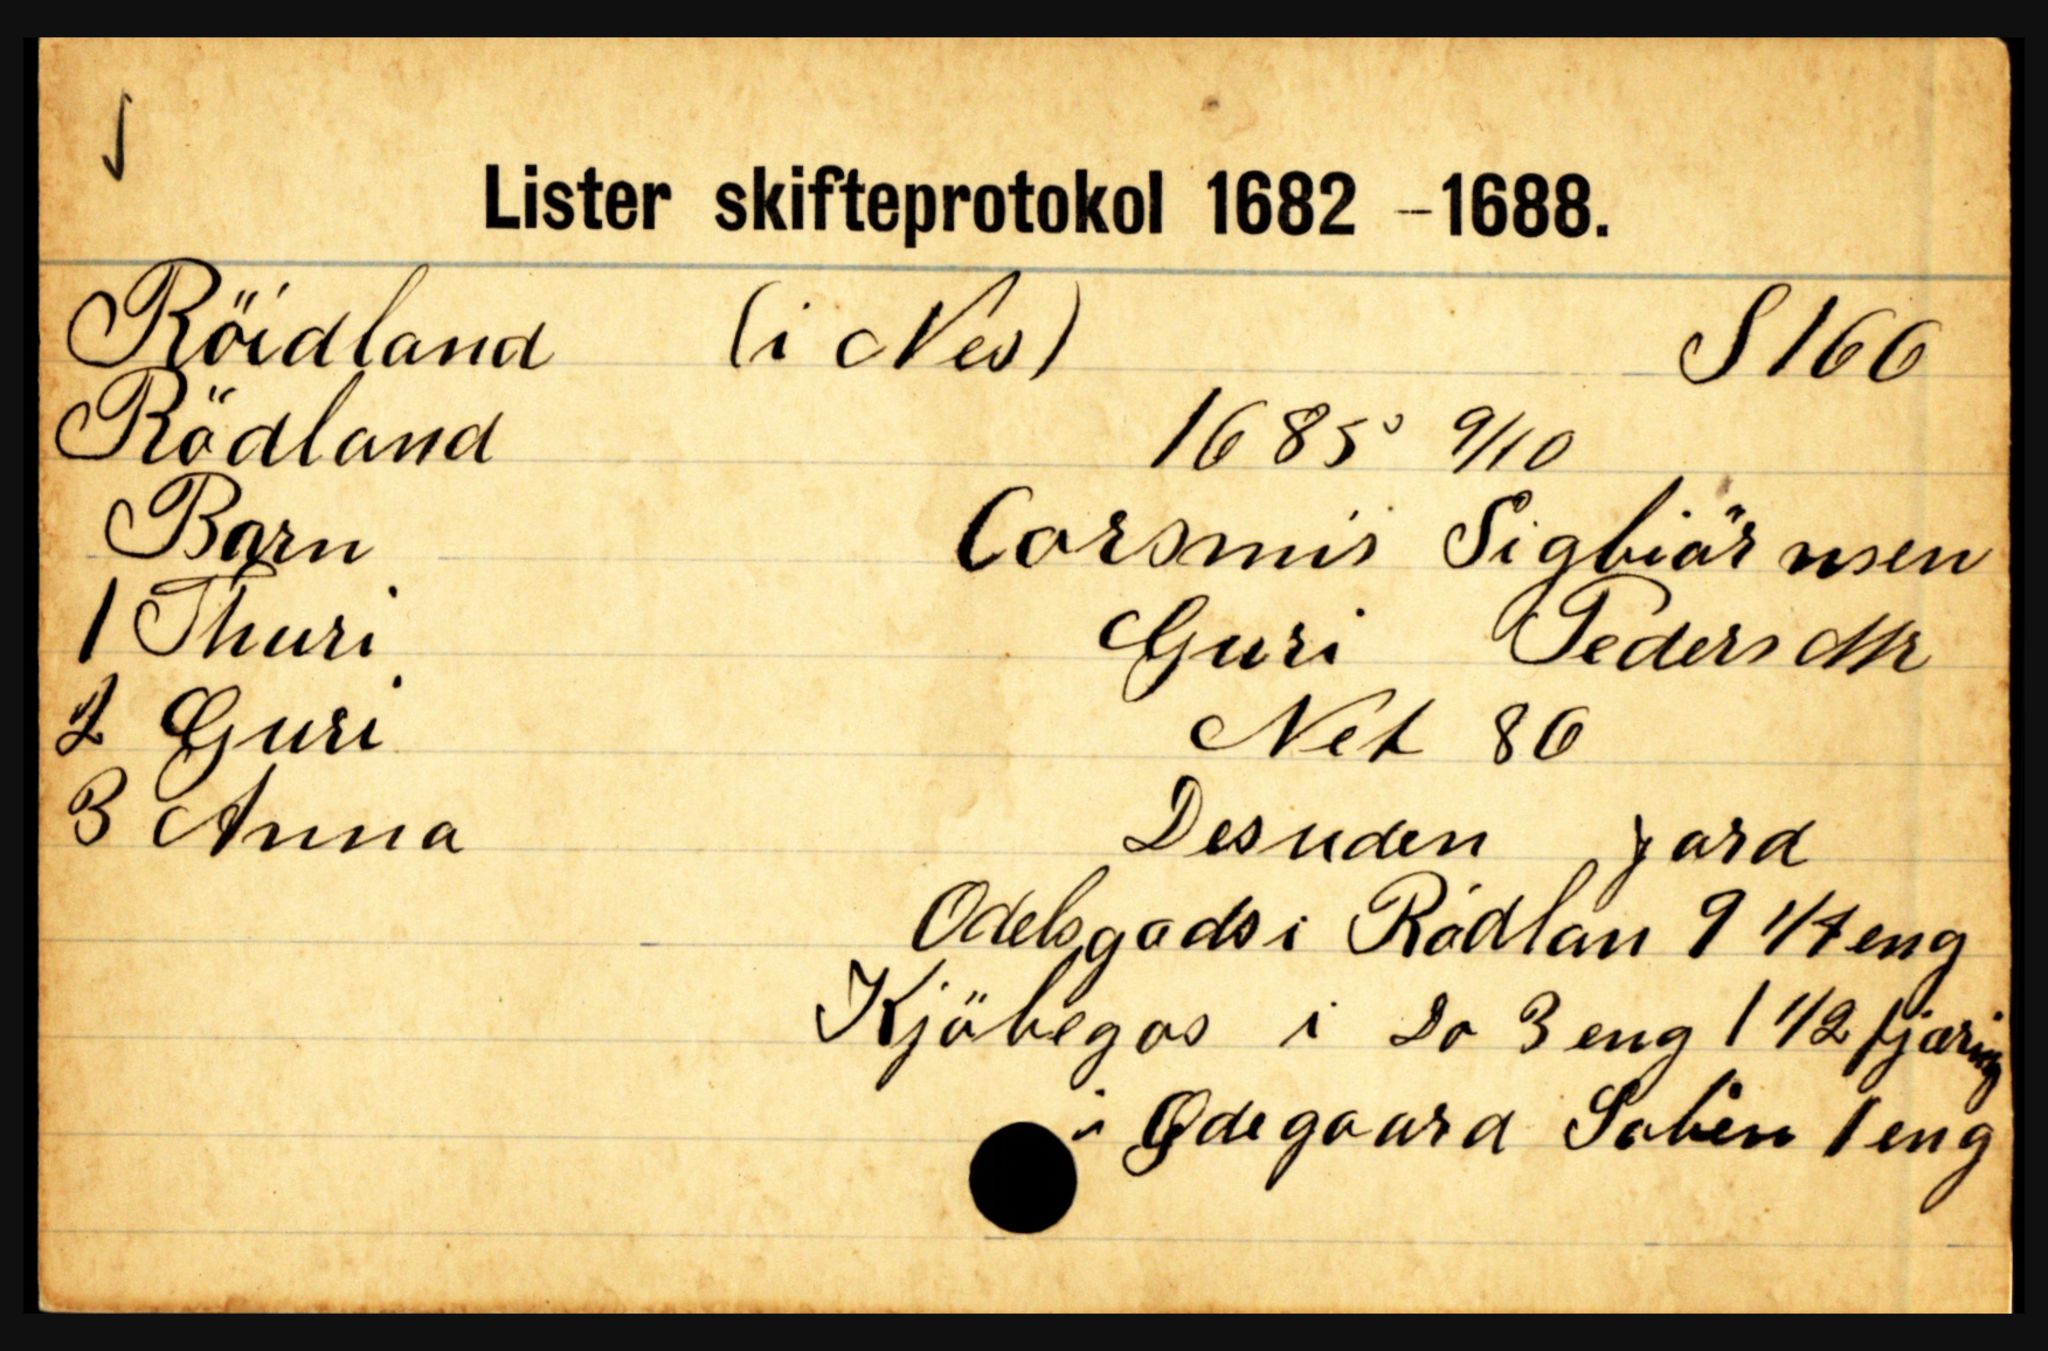 Lister skifteprotokol 1682 - 1688.
Röidland (i Nes) S 166
Rödland 1685 9/10
Barn Corsmis Sigbiörnsen
1 Thuri Guri Peders dtr
2 Guri Net 86
3 Anna Desuden jord
Odelsgods i Rödlan 9 1/4 eng
Kjöbegos i Do 3 eng 1 1/2 fjæring
i Ødegaard 1 eng